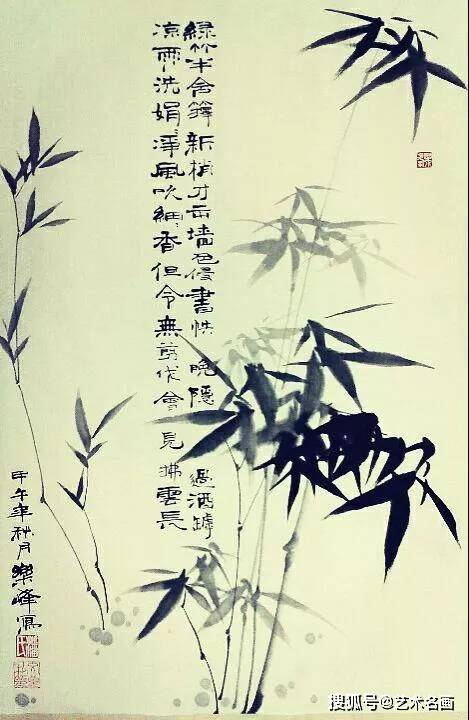 綠竹半含籜新梢才出墻色侵書帙晚隱過酒罇
凉雨洗娟〻淨風吹細〻香但令無剪伐會見拂雲長
甲午年秋月樂峰寫
搜狐号@艺术名画